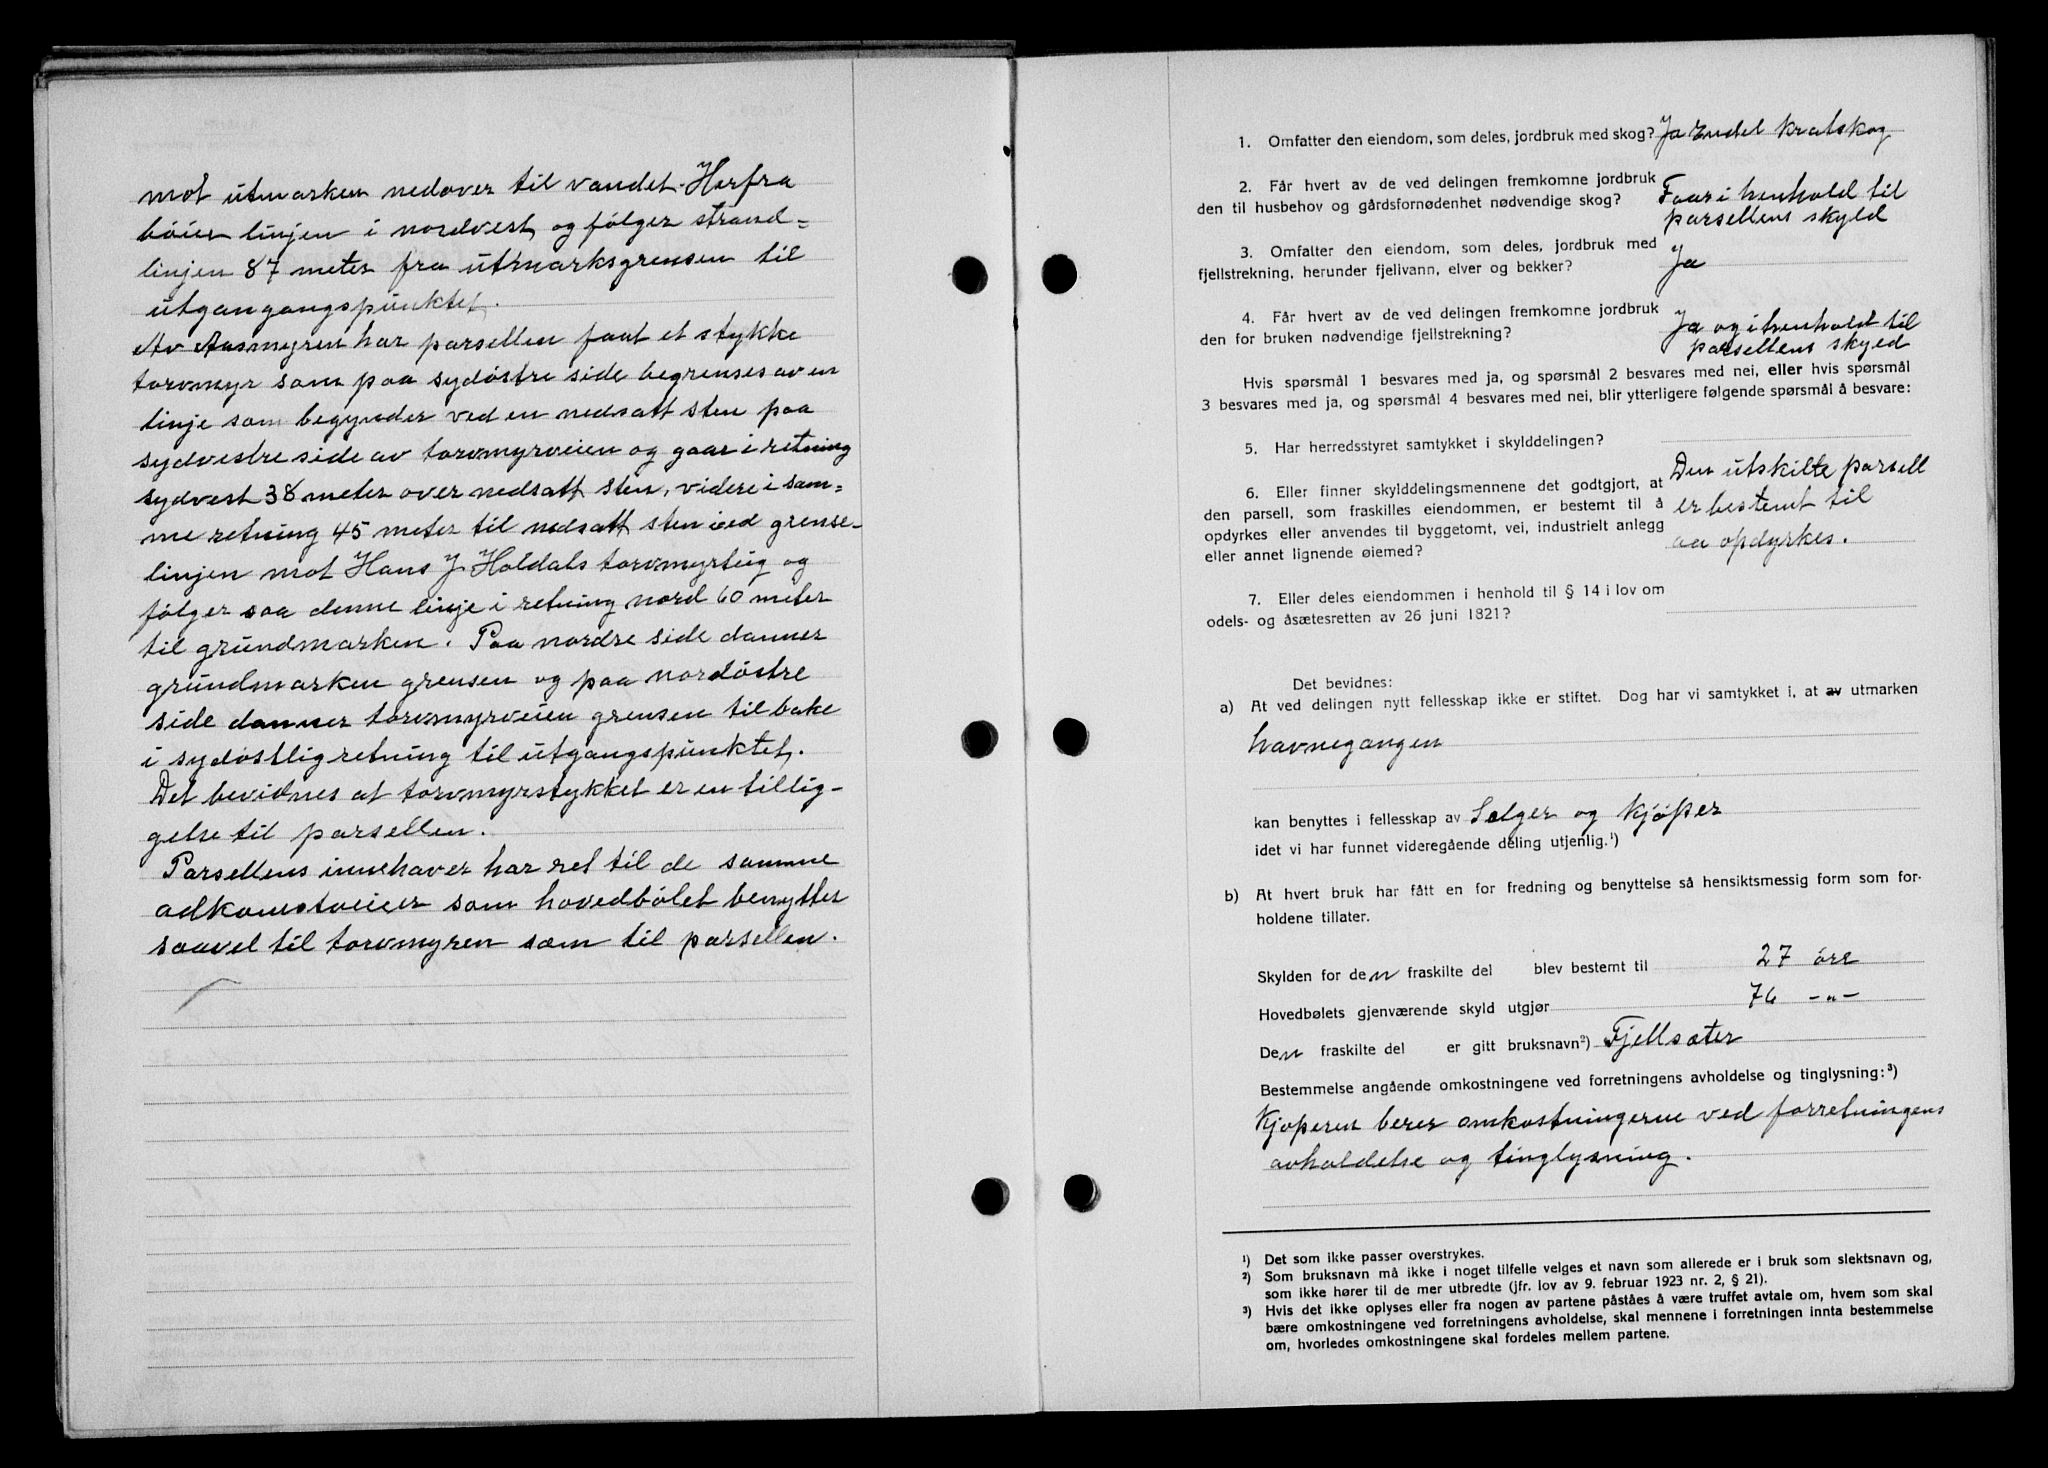 mot utmarken nedover til vandet. Herfra
bøier linjen i nordvest og følger strand=
linjen 87 meter fra utmarksgrensen til
utgangangspunktet.
Av Aasmyren har parsellen faat et stykke
torvmyr som paa sydøstre side begrenses av en
linje som begynder ved en nedsatt sten paa
sydvestre side av torvmyrveien og gaar i retning
sydvest 38 meter over nedsatt sten, videre i sam=
me retning 45 meter til nedsatt sten ved grense-
linjen mot Hans J. Holdals torvmyrteig og
følger saa denne linje i retning nord 60 meter
til grundmarken. Paa nordre side danner
grundmarken grensen og paa nordøstre
side danner torvmyrveien grensen tilbake
i sydøstlig retning til utgangspunktet.
Det bevidnes at torvmyrstykket er en tillig-
gelse til parsellen.
Parsellens innehaver har ret til de samme
adkomstveier som hovedbølet benytter
saavel til torvmyren som til parsellen.
1. Omfatter den eiendom, som deles, jordbruk med skog? Ja endel kratskog
2. Får hvert av de ved delingen fremkomne jordbruk
den til husbehov og gårdsfornødenhet nødvendige skog? Faar i henhold til
parsellens skyld
3. Omfatter den eiendom, som deles, jordbruk med
fjellstrekning, herunder fjellvann, elver og bekker? Ja
4. Får hvert av de ved delingen fremkomne jordbruk
den for bruken nødvendige fjellstrekning? Ja og i henhold til
parsellens skyld
Hvis spørsmål 1 besvares med ja, og spørsmål 2 besvares med nei, eller hvis spørsmål
3 besvares med ja, og spørsmål 4 besvares med nei, blir ytterligere følgende spørsmål å besvare:
5. Har herredsstyret samtykket i skylddelingen?
6. Eller finner skylddelingsmennene det godtgjort, at
den parsell, som fraskilles eiendommen, er bestemt til å
opdyrkes eller anvendes til byggetomt, vei, industrielt anlegg
eller annet lignende øiemed?
Den utskilte parsell
er bestemt til
aa opdyrkes.
7. Eller deles eiendommen i henhold til § 14 i lov om
odels- og åsætesretten av 26 juni 1821?
Det bevidnes:
a) At ved delingen nytt fellesskap ikke er stiftet. Dog har vi samtykket i, at av utmarken
havnegangen
kan benyttes i fellesskap av Selger og Kjøper
idet vi har funnet videregående deling utjenlig.¹)
b) At hvert bruk har fått en for fredning og benyttelse så hensiktsmessig form som for-
holdene tillater.
Skylden for den fraskilte del blev bestemt til 27 øre
Hovedbølets gjenværende skyld utgjør 76 -"-
Den fraskilte del er gitt bruksnavn²) Fjellsæter
Bestemmelse angående omkostningene ved forretningens avholdelse og tinglysning:³)
Kjøperen berer omkostningerne ved forretningens
avholdelse og tinglysning.
¹) Det som ikke passer overstrykes.
²) Som bruksnavn må ikke i noget tilfelle velges et navn som allerede er i bruk som slektsnavn og,
som ikke hører til de mer utbredte (jfr. lov av 9. februar 1923 nr. 2, § 21).
³) Hvis det ikke oplyses eller fra nogen av partene påståes å være truffet avtale om, hvem som skal
bære omkostningene ved forretningens avholdelse, skal mennene i forretningen innta bestemmelse
om, hvorledes omkostningene skal fordeles mellem partene.